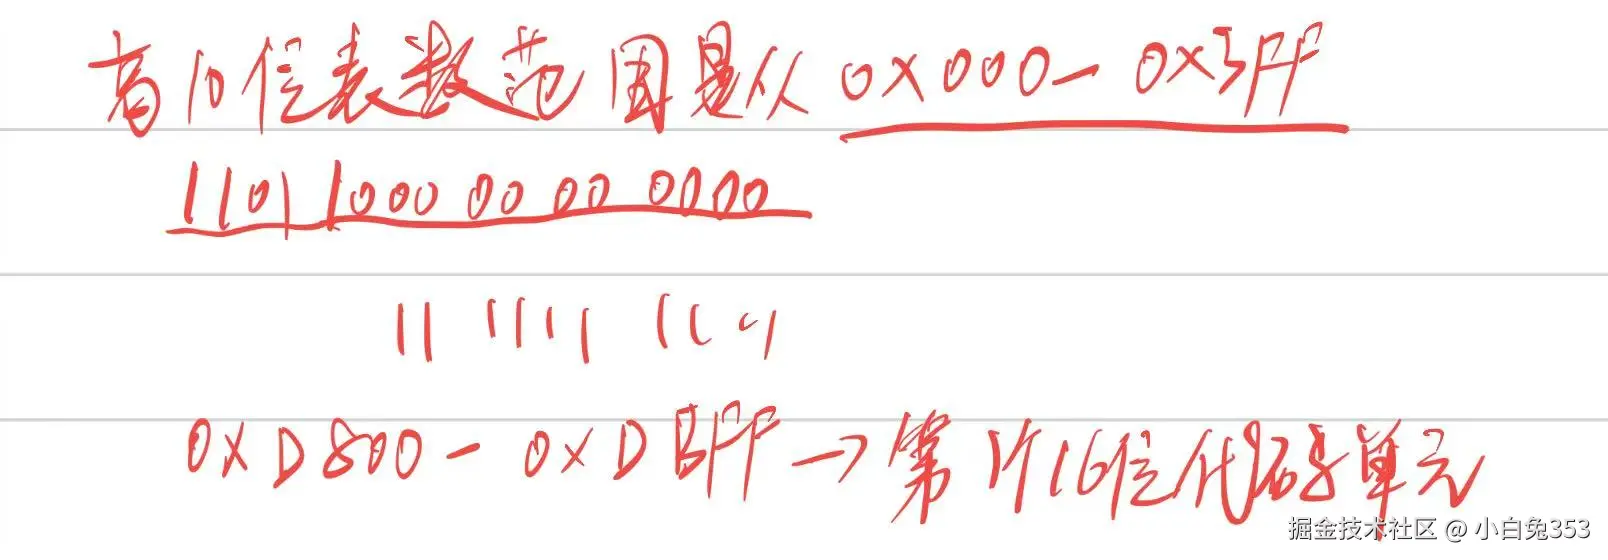 高10位表数范围是从 0X000— 0X3FF
1101 1000 0000 0000
11 1111 1111
0XD800— 0XDBFF → 第1个16位代码单元
掘金技术社区 @ 小白兔353